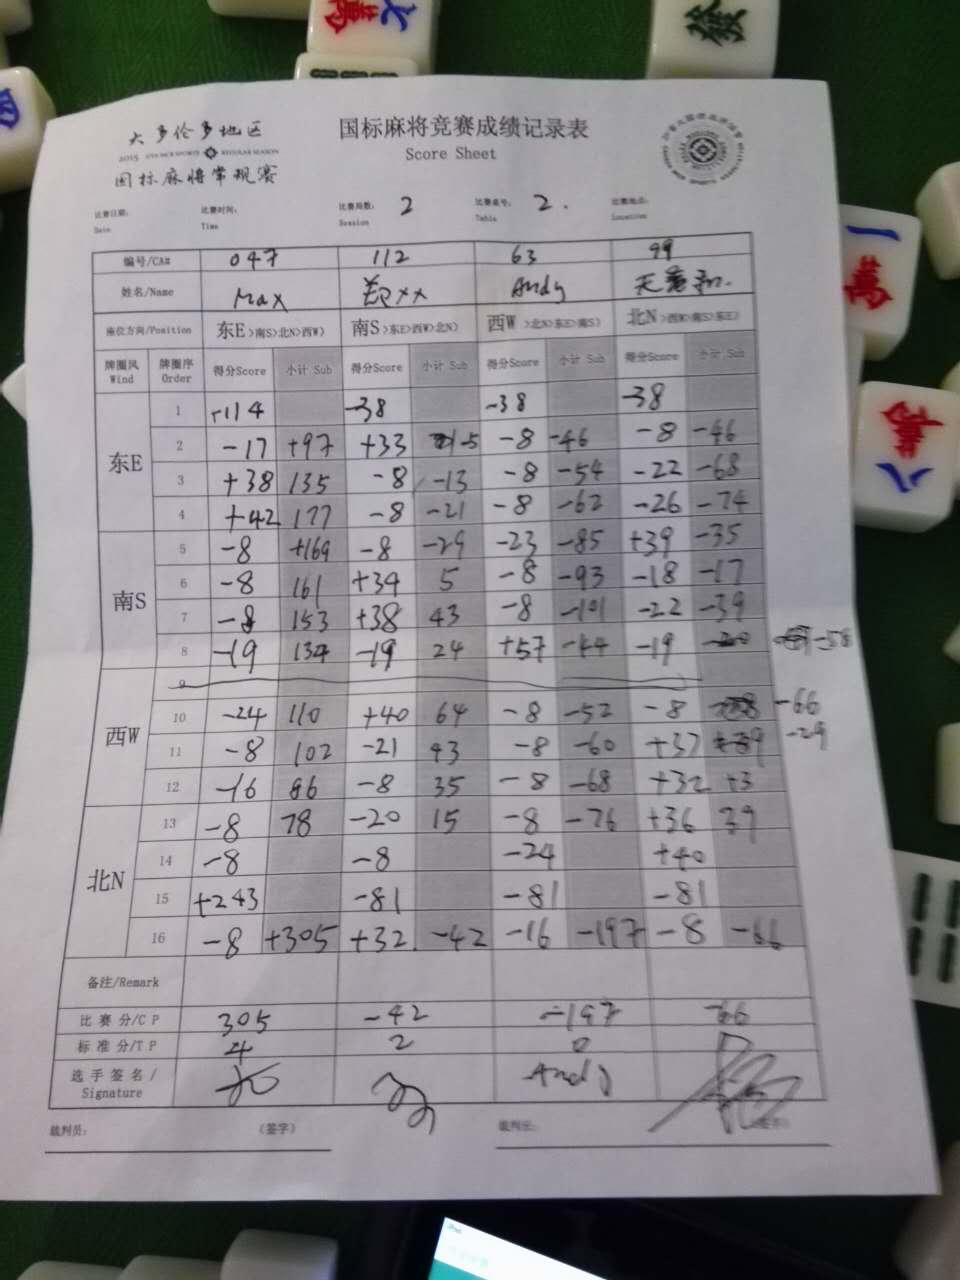 大多伦多地区
2015 GTA MCR SPORTS REGULAR SEASON
国标麻将常规赛
国标麻将竞赛成绩记录表
Score Sheet
比赛日期: 比赛时间: 比赛局数: 2 比赛桌号: 2. 比赛地点:
Date Time Session Table Location
编号/CA# 047 112 63 99
姓名/Name Max 郑xx Andy
座位方向/Position 东E>南S>北N>西W) 南S>东E>西W>北N) 西W>北N>东E>南S) 北N>西W>南S>东E)
牌圈风 Wind 牌圈序 Order 得分Score 小计 Sub 得分Score 小计 Sub 得分Score 小计 Sub 得分Score 小计 Sub
东E
1 +114 -38 -38 -38
2 -17 +97 +33 -5 -8 -46 -8 -46
3 +38 135 -8 -13 -8 -54 -22 -68
4 +42 177 -8 -21 -8 -62 -26 -74
南S
5 -8 +169 -8 -29 -23 -85 +39 -35
6 -8 161 +34 5 -8 -93 -18 -17
7 -8 153 +38 43 -8 -101 -22 -39
8 -19 134 -19 24 +57 -44 -19 -58
西W
9
10 -24 110 +40 64 -8 -52 -8 -66
11 -8 102 -21 43 -8 -60 +37 -29
12 -16 86 -8 35 -8 -68 +32 +3
北N
13 -8 78 -20 15 -8 -76 +36 39
14 -8 -8 -24 +40
15 +243 -81 -81 -81
16 -8 +305 +32 -42 -16 -197 -8 -66
备注/Remark
比赛分/C P 305 -42 -197 -66
标准分/T P 4 2 0
选手签名/
Signature Andy
裁判员: (签字) 裁判长: (签字)
發
七萬
一萬
八萬
四